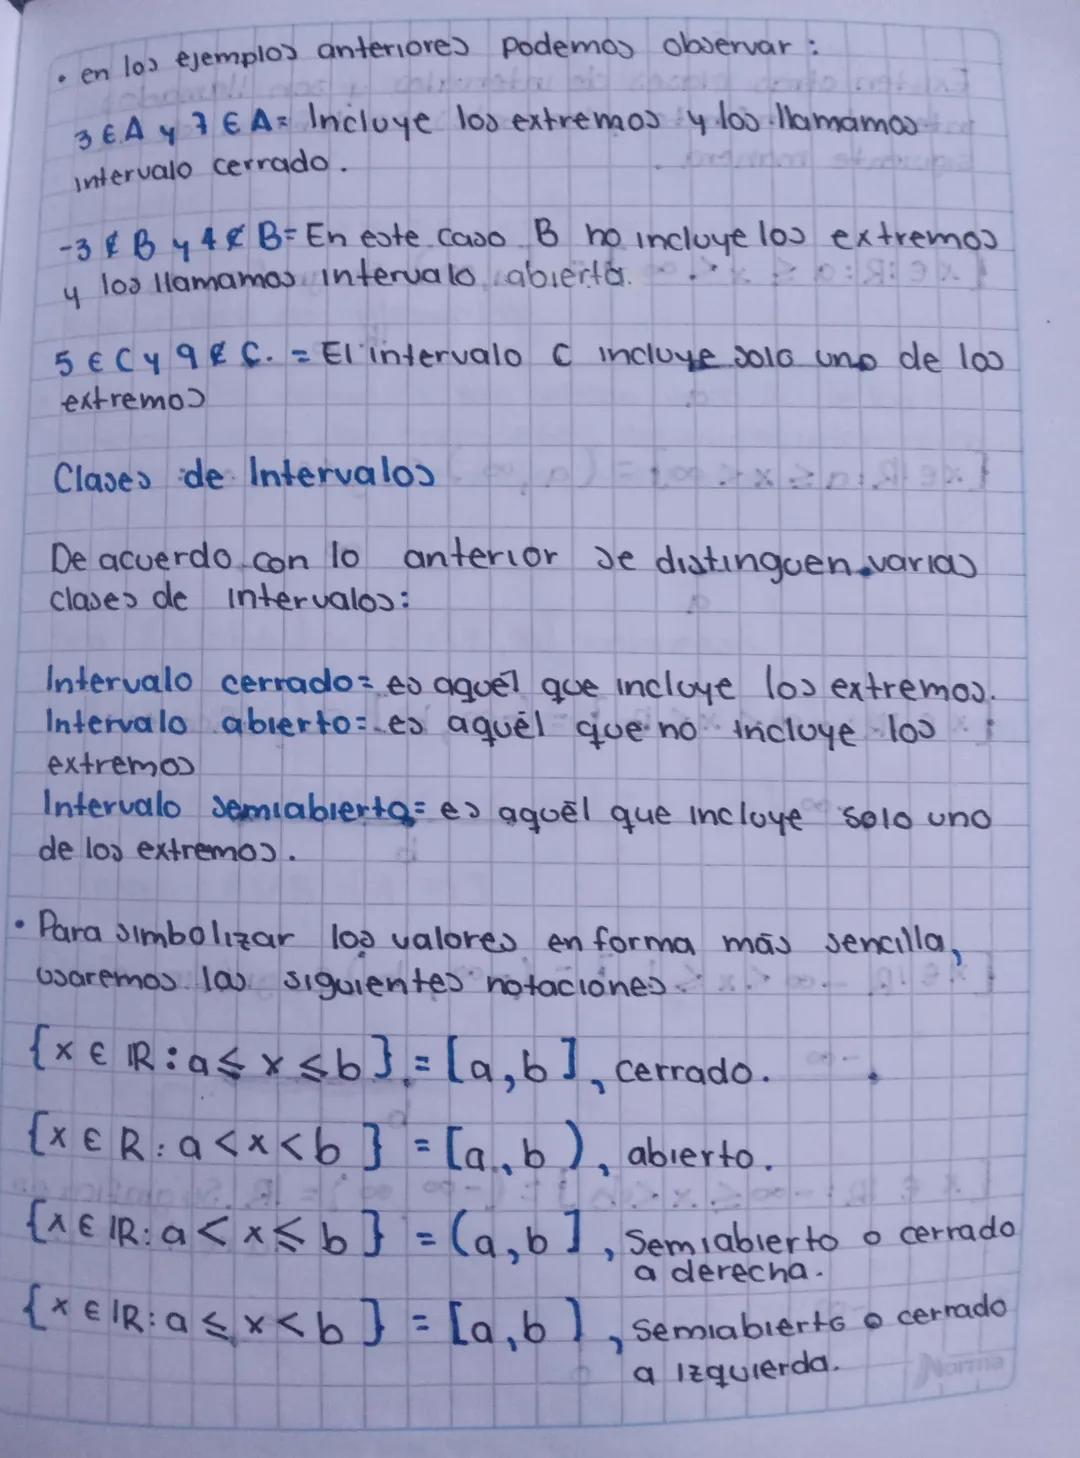 • en los ejemplos anteriores podemos observar:
3 ∈ A y 7 ∈ A = Incluye los extremos y los llamamos
intervalo cerrado.
-3 ∉ B y 4 ∉ B = En este caso B no incluye los extremos
y los llamamos intervalo abierto.
5 ∈ C y 9 ∉ C. = El intervalo C incluye solo uno de los
extremos
Clases de Intervalos
De acuerdo con lo anterior se distinguen varias
clases de intervalos:
Intervalo cerrado = es aquél que incluye los extremos.
Intervalo abierto = es aquél que no incluye los
extremos
Intervalo semiabierto = es aquél que incluye solo uno
de los extremos.
• Para simbolizar los valores en forma más sencilla,
usaremos las siguientes notaciónes.
{x ∈ ℝ : a ≤ x ≤ b} = [a, b], cerrado.
{x ∈ R : a < x < b} = [a, b), abierto.
{x ∈ ℝ : a < x ≤ b} = (a, b], Semiabierto o cerrado
a derecha.
{x ∈ ℝ : a ≤ x < b} = [a, b), semiabierto o cerrado
a izquierda.
Norma